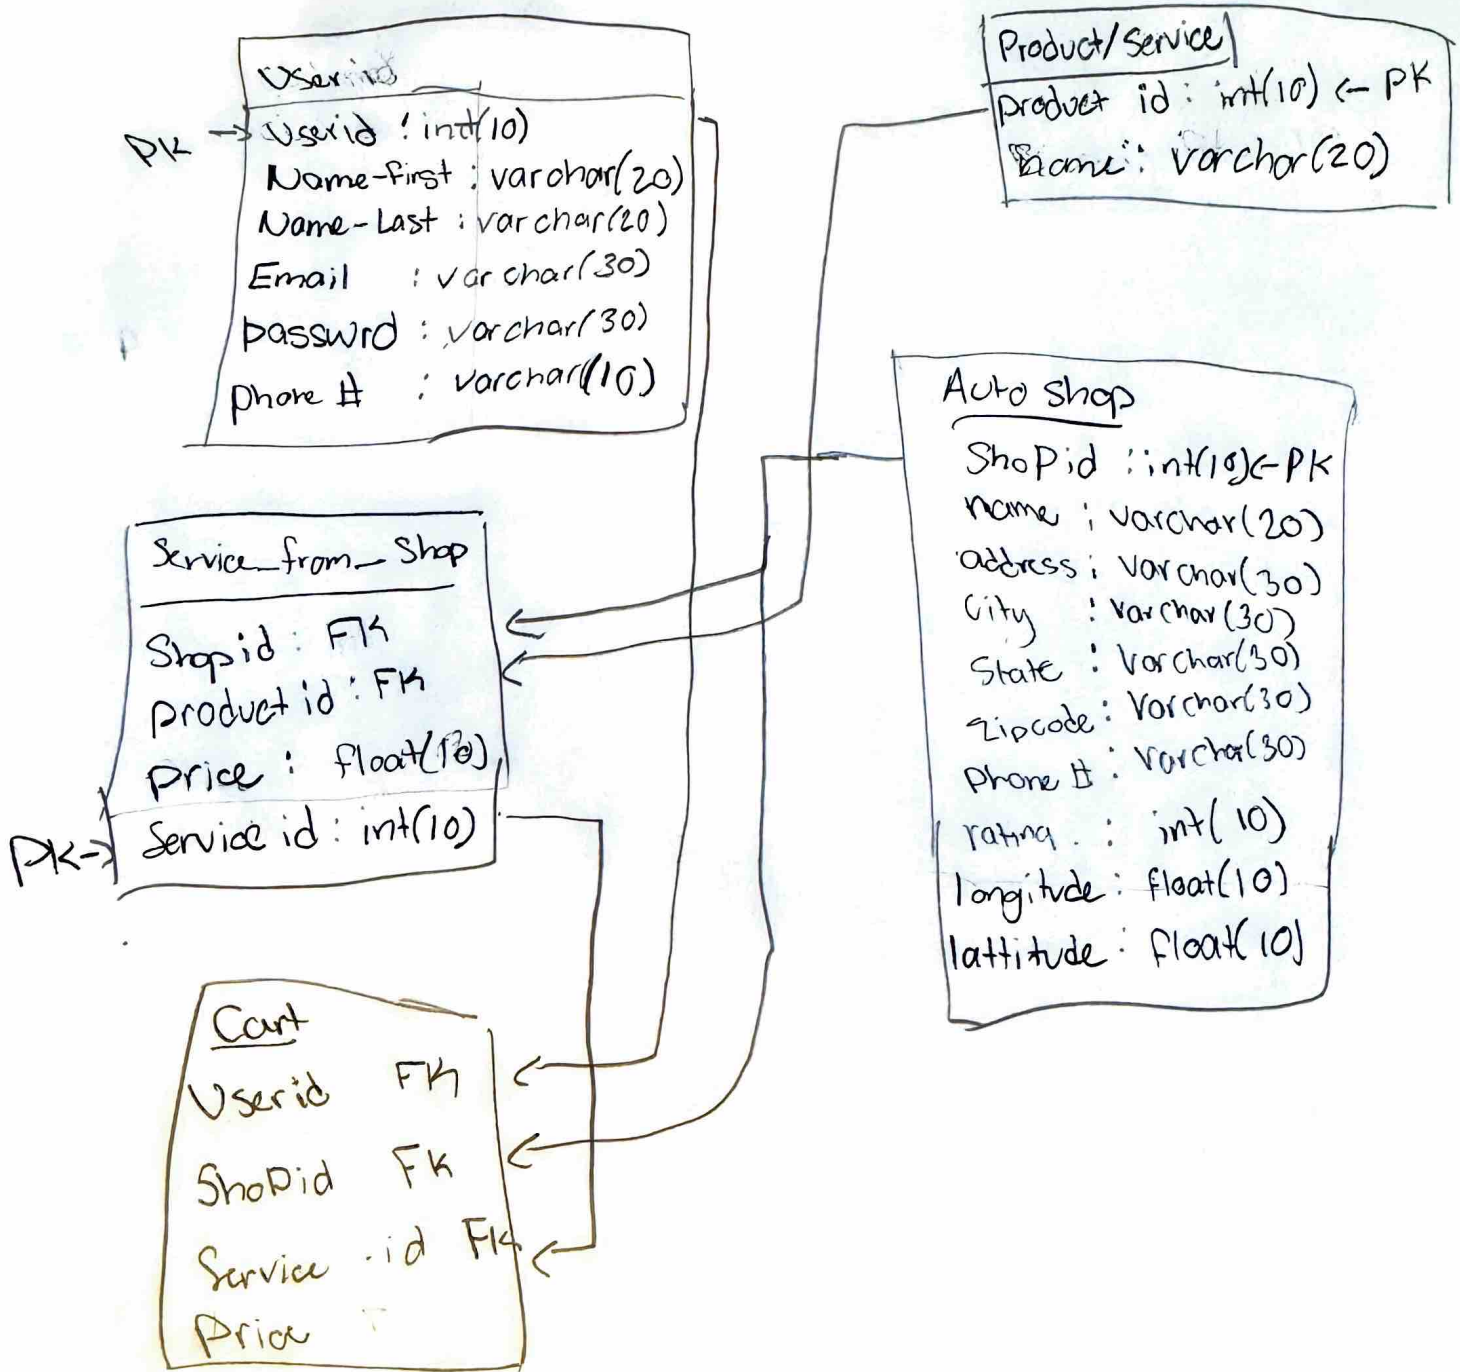 User
PK → Userid : int(10)
Name-first : varchar(20)
Name-Last : varchar(20)
Email : varchar(30)
passwrd : varchar(30)
phone # : varchar(10)
Product/Service
product id : int(10) ← PK
name : varchar(20)
Auto shop
Shopid : int(10) ← PK
name : varchar(20)
address : varchar(30)
City : varchar(30)
State : varchar(30)
zipcode : varchar(30)
phone # : varchar(30)
rating : int(10)
longitude : float(10)
lattitude : float(10)
Service_from_Shop
Shopid : FK
product id : FK
price : float(10)
PK → Service id : int(10)
Cart
Userid FK
Shopid FK
Service id FK
Price